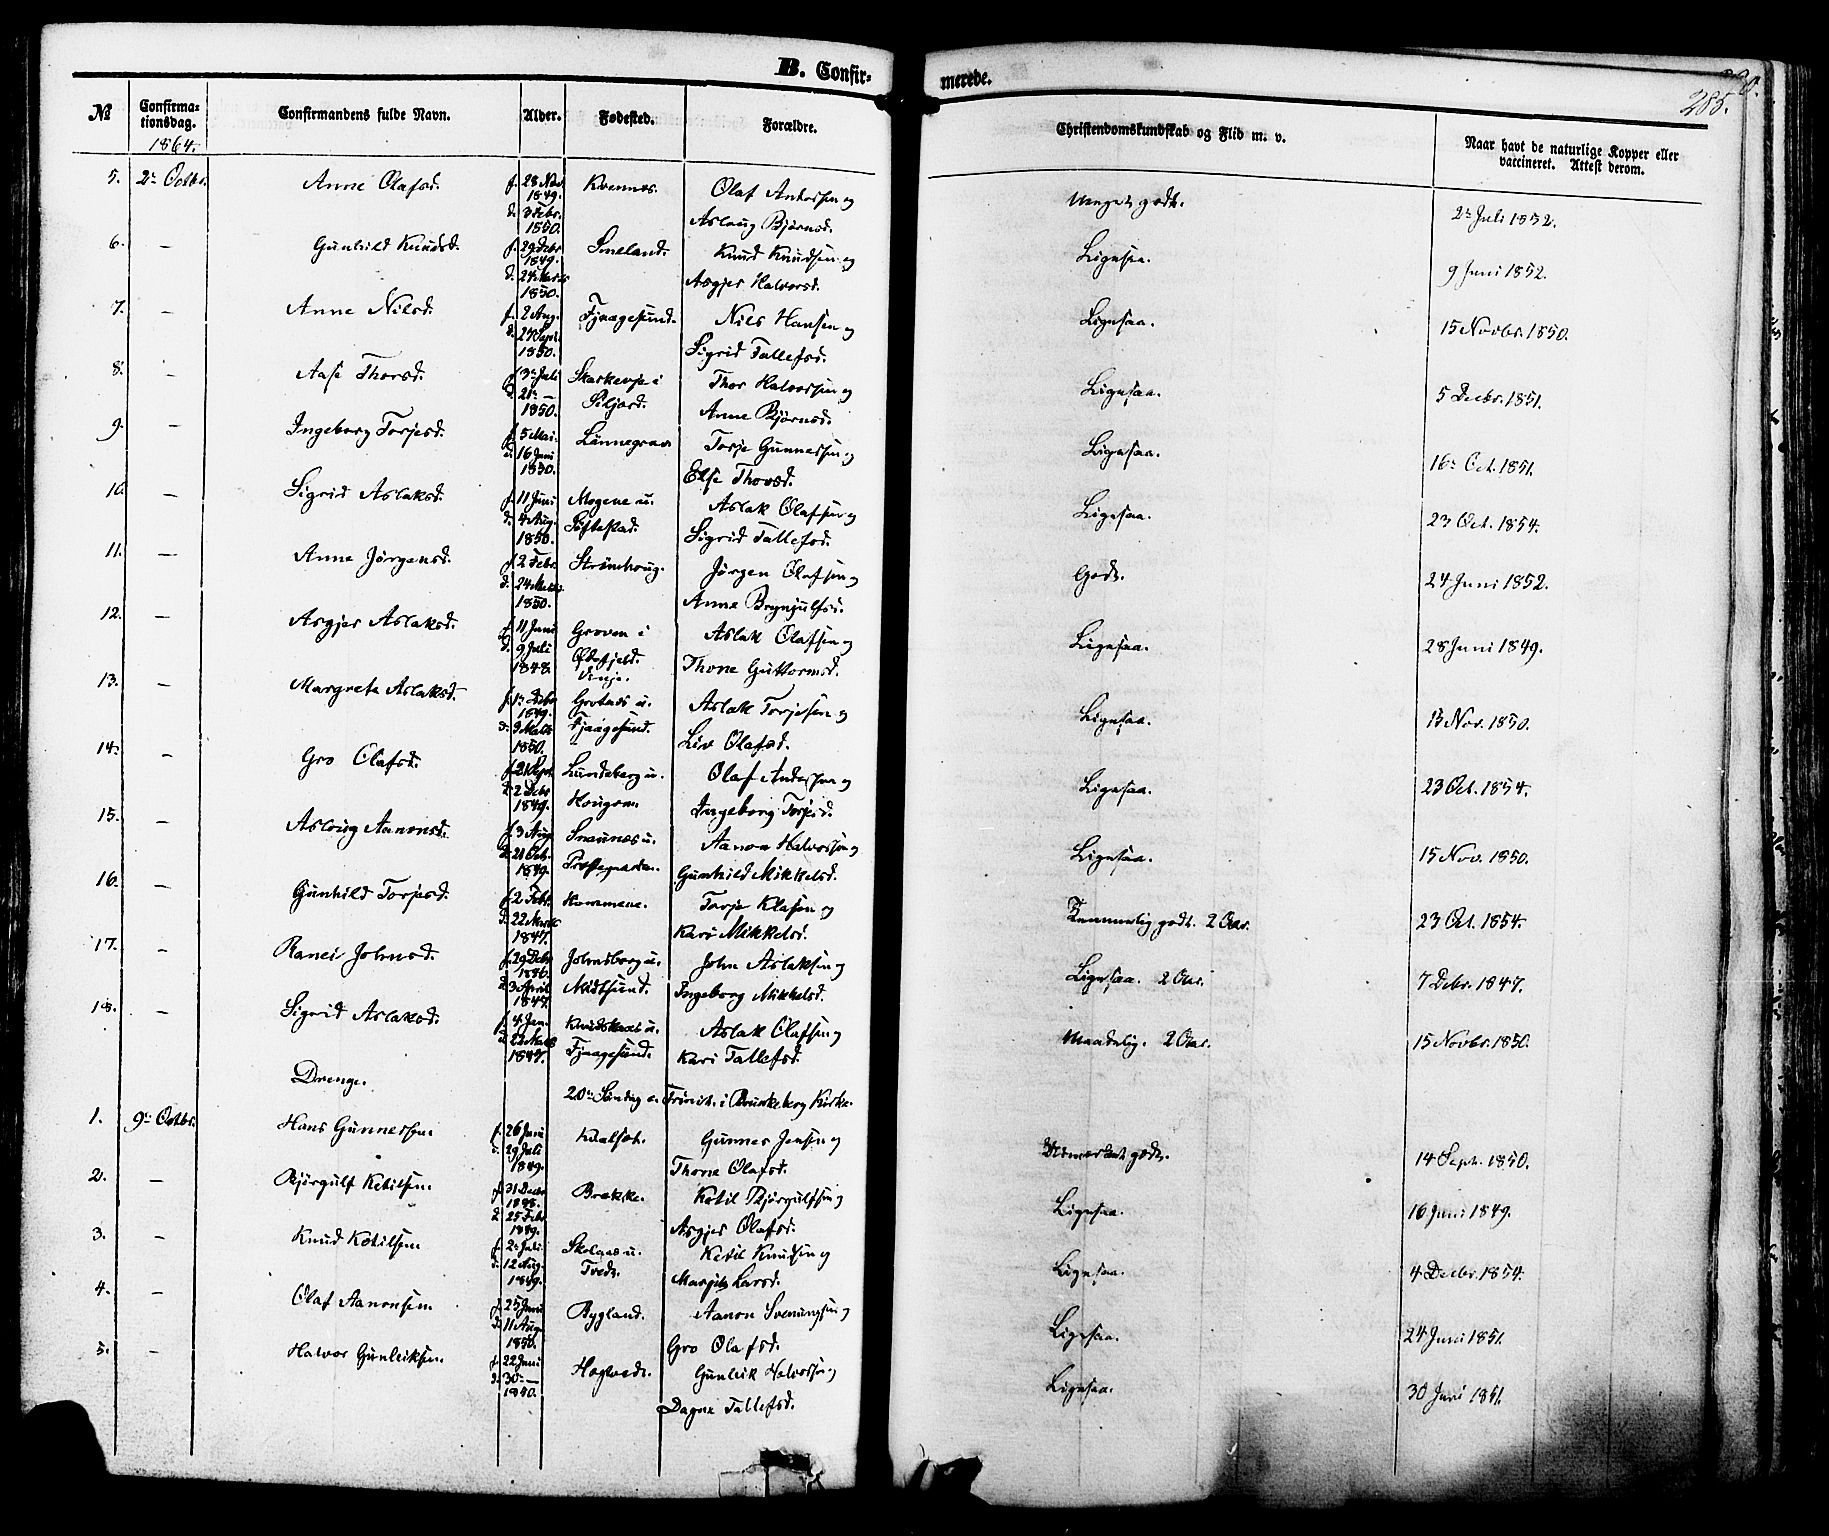 B. Confir-
merede.
285.
№
Confirma-
tionsdag.
1864.
Confirmandens fulde Navn.
Alder.
Fødested.
Forældre.
Christendomskundskab og Flid m. v.
Naar havt de naturlige Kopper eller
vaccineret. Attest derom.
5. 2den Octbr. Anne Olafsd. f. 28 Nov. Kvennos. Olaf Anderssen og Meget godt. 2den Juli 1852.
1849.
d. 3 Febr. Aslaug Bjørnsd.
1850.
6. — Gunhild Knudsd. f. 29 Debr. Smeland. Knud Knudsen og Ligesaa. 9 Juni 1852.
1849.
d. 24 Marts Asgjer Halvorsd.
1850.
7. — Anne Nilsd. f. 2 Aug. Fjaagesund. Nils Hansen og Ligesaa. 15 Novbr. 1850.
d. 29 Sept. Sigrid Tallefsd.
1850.
8. — Aase Thorsd. f. 3 Juli Skarkense i Thor Halvorsen og Ligesaa. 5 Decbr. 1851.
d. 21 — Siljord. Anne Bjørnsd.
1850.
9. — Ingeborg Torjesd. f. 5 Mai. Lønnegrav Torje Gunnessen og Ligesaa. 16 Oct. 1851.
d. 16 Juni Else Thorsd.
1850.
10. — Sigrid Aslaksd. f. 11 Juni Mogene u. Aslak Olafsen og Ligesaa. 23 Oct. 1854.
d. 4 Aug. Søftestad. Sigrid Tallefsd.
1850.
11. — Anne Jørgensd. f. 2 Febr. Strømhoug. Jørgen Olafsen og Godt. 24 Juni 1852.
d. 24 Marts Anne Brynjulfsd.
1850.
12. — Asgjer Aslaksd. f. 11 Juni Groven i Aslak Olafsen og Ligesaa. 28 Juni 1849.
d. 9 Juli Øifjeld. Thone Guttormsd.
1848. Vinje.
13. — Margrete Aslaksd. f. 1 Debr. Grotnes u. Aslak Torjesen og Ligesaa. 13 Nov. 1850.
1849.
d. 3 Marts Fjaagesund. Liv Olafsd.
1850.
14. — Gro Olafsd. f. 21 Sept. Lundeberg u. Olaf Anderssen og Ligesaa. 23 Oct. 1854.
d. 2 Debr. Hougom. Ingeborg Torjesd.
1849.
15. — Aslaug Aanonsd. f. 3 Aug. Snaunes u. Aanon Halvorssen og Ligesaa. 15 Nov. 1850.
d. 21 Oct. Præstegaarden. Gunhild Mikkelsd.
1849.
16. — Gunhild Torjesd. f. 2 Febr. Hommene. Torje Klasen og Temmelig godt. 2 Aar. 23 Oct. 1854.
d. 22 Marts Kari Mikkelsd.
1847.
17. — Ranei Johnsd. f. 29 Debr. Johnsborg u. John Aslaksen og Ligesaa. 2 Aar. 7 Debr. 1847.
1846.
d. 3 April Midtsund. Ingeborg Mikkelsd.
1847.
18. — Sigrid Aslaksd. f. 4 Jan. Knudskaas u. Aslak Olafsen og Maadelig. 2 Aar. 15 Novbr. 1850.
d. 22 Marts Fjaagesund. Kari Tallefsd.
1847.
Drenge.
20de Søndag e. Trinit. i Brunkeberg Kirke.
1. 9de Octbr. Hans Gunnessen. f. 26 Juni Kvalsot. Gunnes Jensen og Udmærket godt. 14 Sept. 1850.
d. 29 Juli Thone Olafsd.
1849.
2. — Bjørgulf Ketilsen. f. 31 Decbr. Brekke. Ketil Bjørgulfsen og Ligesaa. 16 Juni 1849.
1848.
d. 25 Febr. Asgjer Olafsd.
1849.
3. — Knud Ketilsen f. 2 Juli Skolaas u. Ketil Knudsen og Ligesaa. 4 Decbr. 1854.
d. 12 Aug. Tveds. Margith Larsd.
1849.
4. — Olaf Aanonsen. f. 25 Juni Bygland. Aanon Sveningsen og Ligesaa. 24 Juni 1851.
d. 11 Aug. Gro Olafsd.
1850.
5. — Halvor Gunleiksen. f. 22 Juni Hogtvedt. Gunleik Halvorssen og Ligesaa. 30 Juni 1851.
d. 30 — Dagne Tallefsd.
1850.